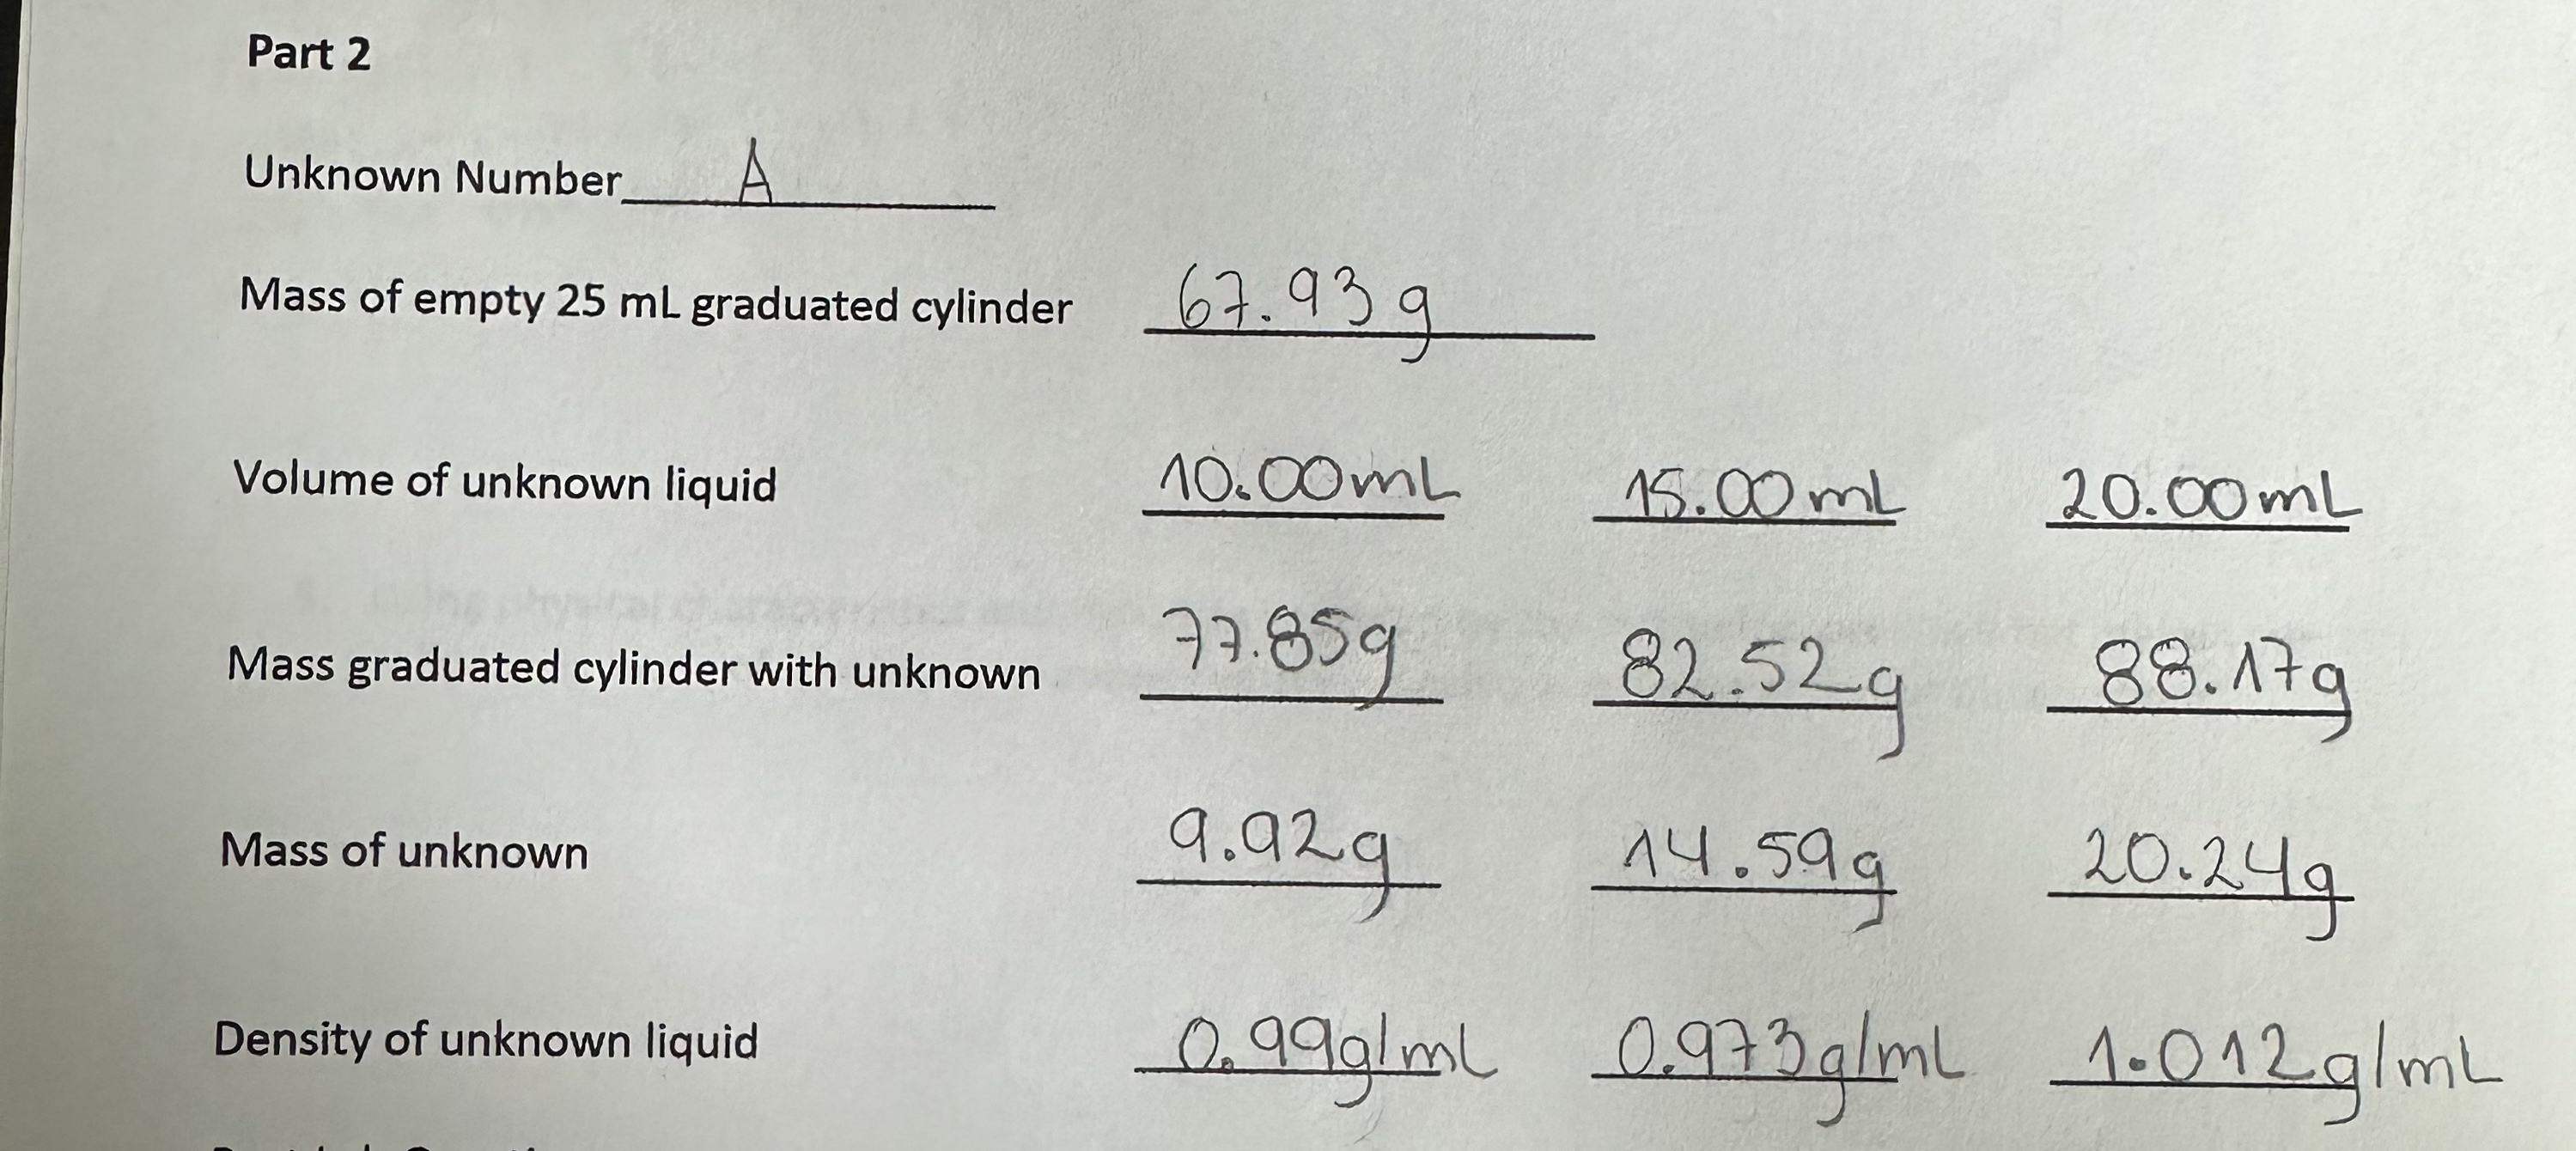 Part 2
Unknown Number A
Mass of empty 25 mL graduated cylinder 67.93 g
Volume of unknown liquid 10.00mL 15.00 mL 20.00mL
Mass graduated cylinder with unknown 77.85g 82.52g 88.17g
Mass of unknown 9.92g 14.59g 20.24g
Density of unknown liquid 0.99g/mL 0.973g/mL 1.012g/mL